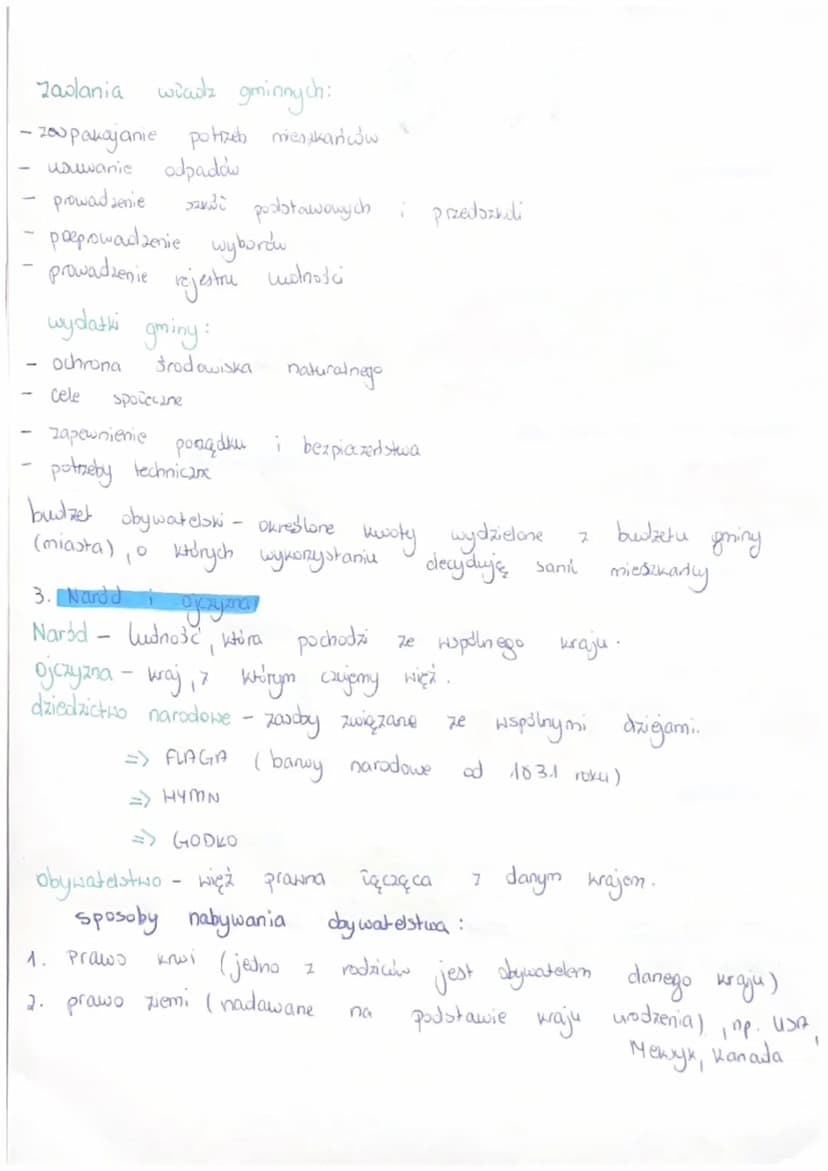 zadania władz gminnych:
- zaspakajanie potrzeb mieszkańców
- usuwanie odpadów
- prowadzenie szkół podstawowych i przedszkoli
- przeprowadzenie wyborów
- prowadzenie rejestru ludności
wydatki gminy:
- ochrona środowiska naturalnego
- cele społeczne
- zapewnienie porządku i bezpieczeństwa
- potrzeby techniczne
budżet obywatelski - określone kwoty wydzielone z budżetu gminy
(miasta), o których wykorzystaniu decydują sami mieszkańcy
3. Naród i ojczyzna
Naród - ludność, która pochodzi ze wspólnego kraju.
Ojczyzna - kraj, z którym czujemy więź.
dziedzictwo narodowe - zasoby związane ze wspólnymi dziejami.
=> FLAGA (barwy narodowe od 1831 roku)
=> HYMN
=> GODŁO
obywatelstwo - więź prawna łącząca z danym krajem.
sposoby nabywania obywatelstwa:
1. Prawo krwi (jedno z rodziców jest obywatelem danego kraju)
2. prawo ziemi (nadawane na podstawie kraju urodzenia), np. USA,
Meksyk, Kanada